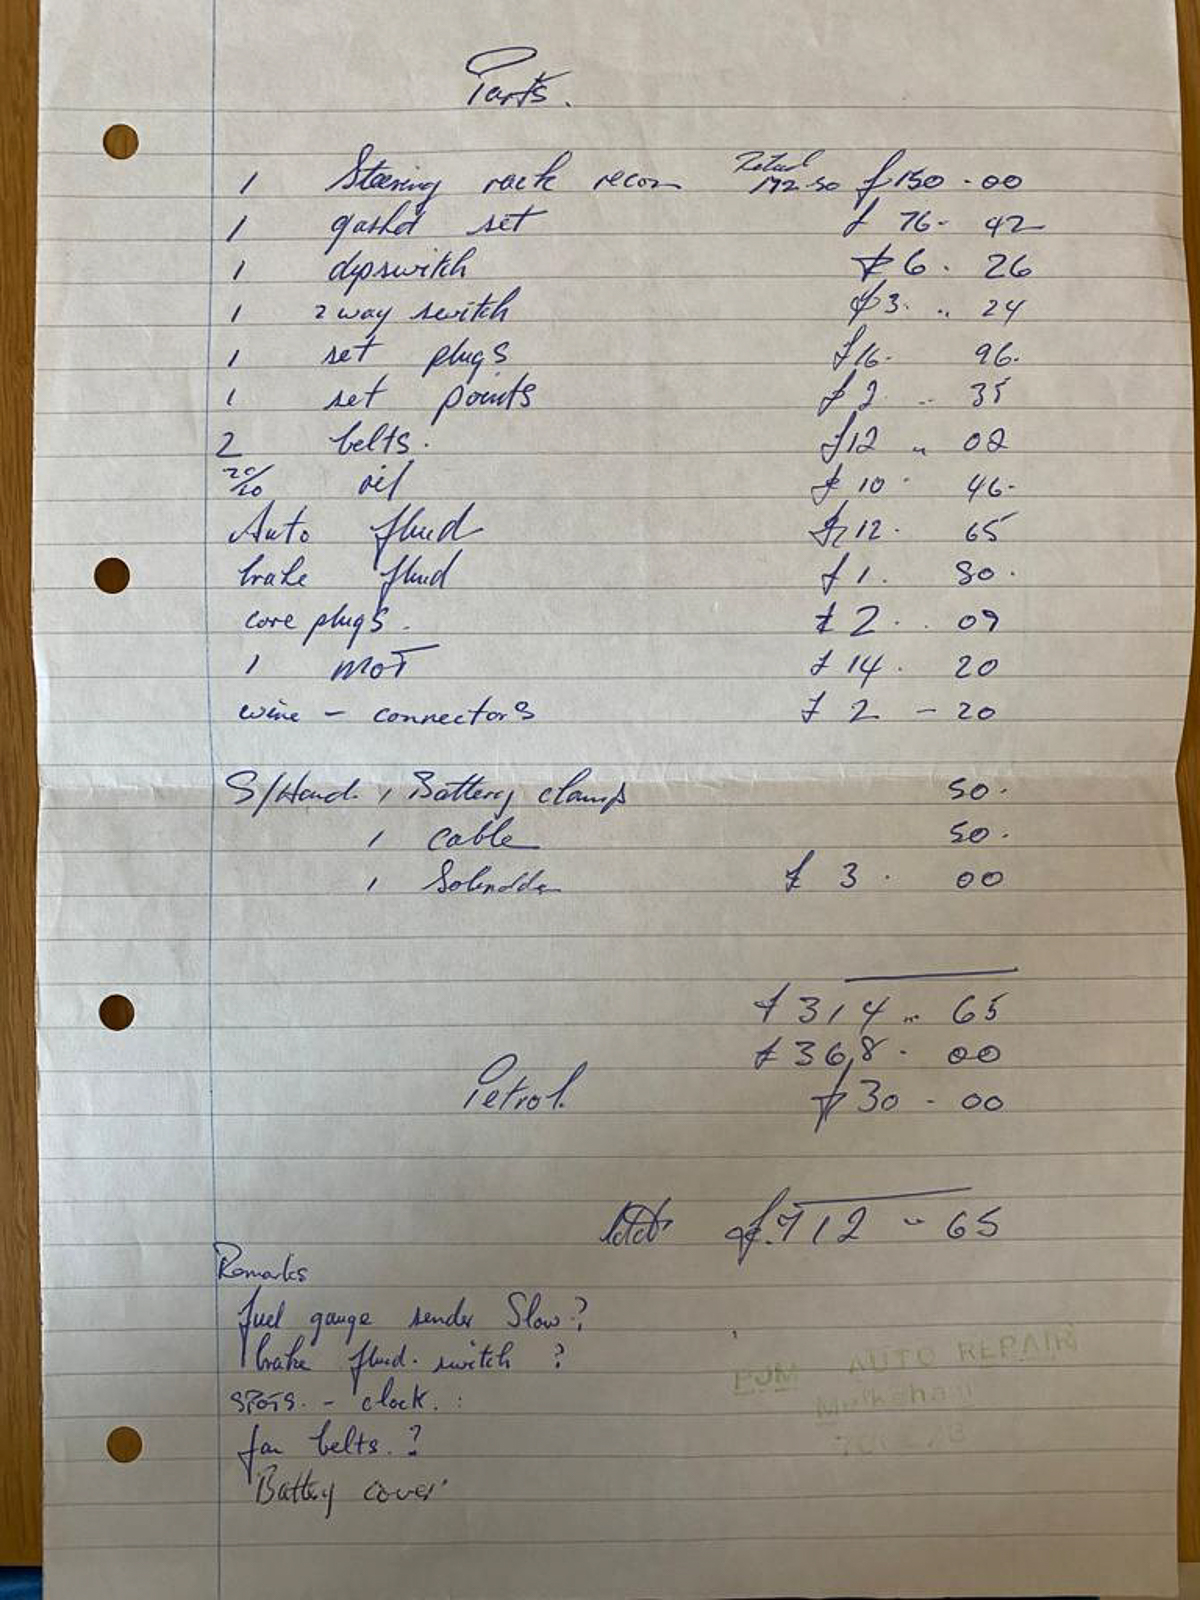 Parts.
1 Steering rack recon Retail 172.50 £150.00
1 gasket set £76-42
1 dipswitch £6.26
1 2 way switch £3.. 24
1 set plugs £16- 96.
1 set points £2 .. 35
2 belts. £12 " 02
20/50 oil £10. 46-
Auto fluid £12. 65
brake fluid £1. 80.
core plugs. £2.. 09
1 MOT £14. 20
wire - connectors £2 - 20
S/Hand. 1 Battery clamp 50.
1 cable 50.
1 £3. 00
£314 .. 65
£368. 00
Petrol. £30-00
£712 " 65
Remarks
fuel gauge sender Slow?
brake fluid. switch ?
spots. - clock. :
fan belts. ?
Battery cover.
PJM AUTO REPAIR
Melksham